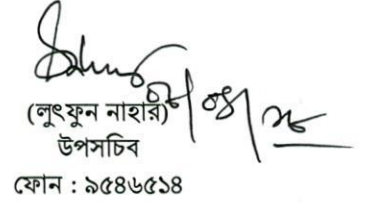 (লুৎফুন নাহার)
উপসচিব
ফোন : ৯৫৪৬৫১৪